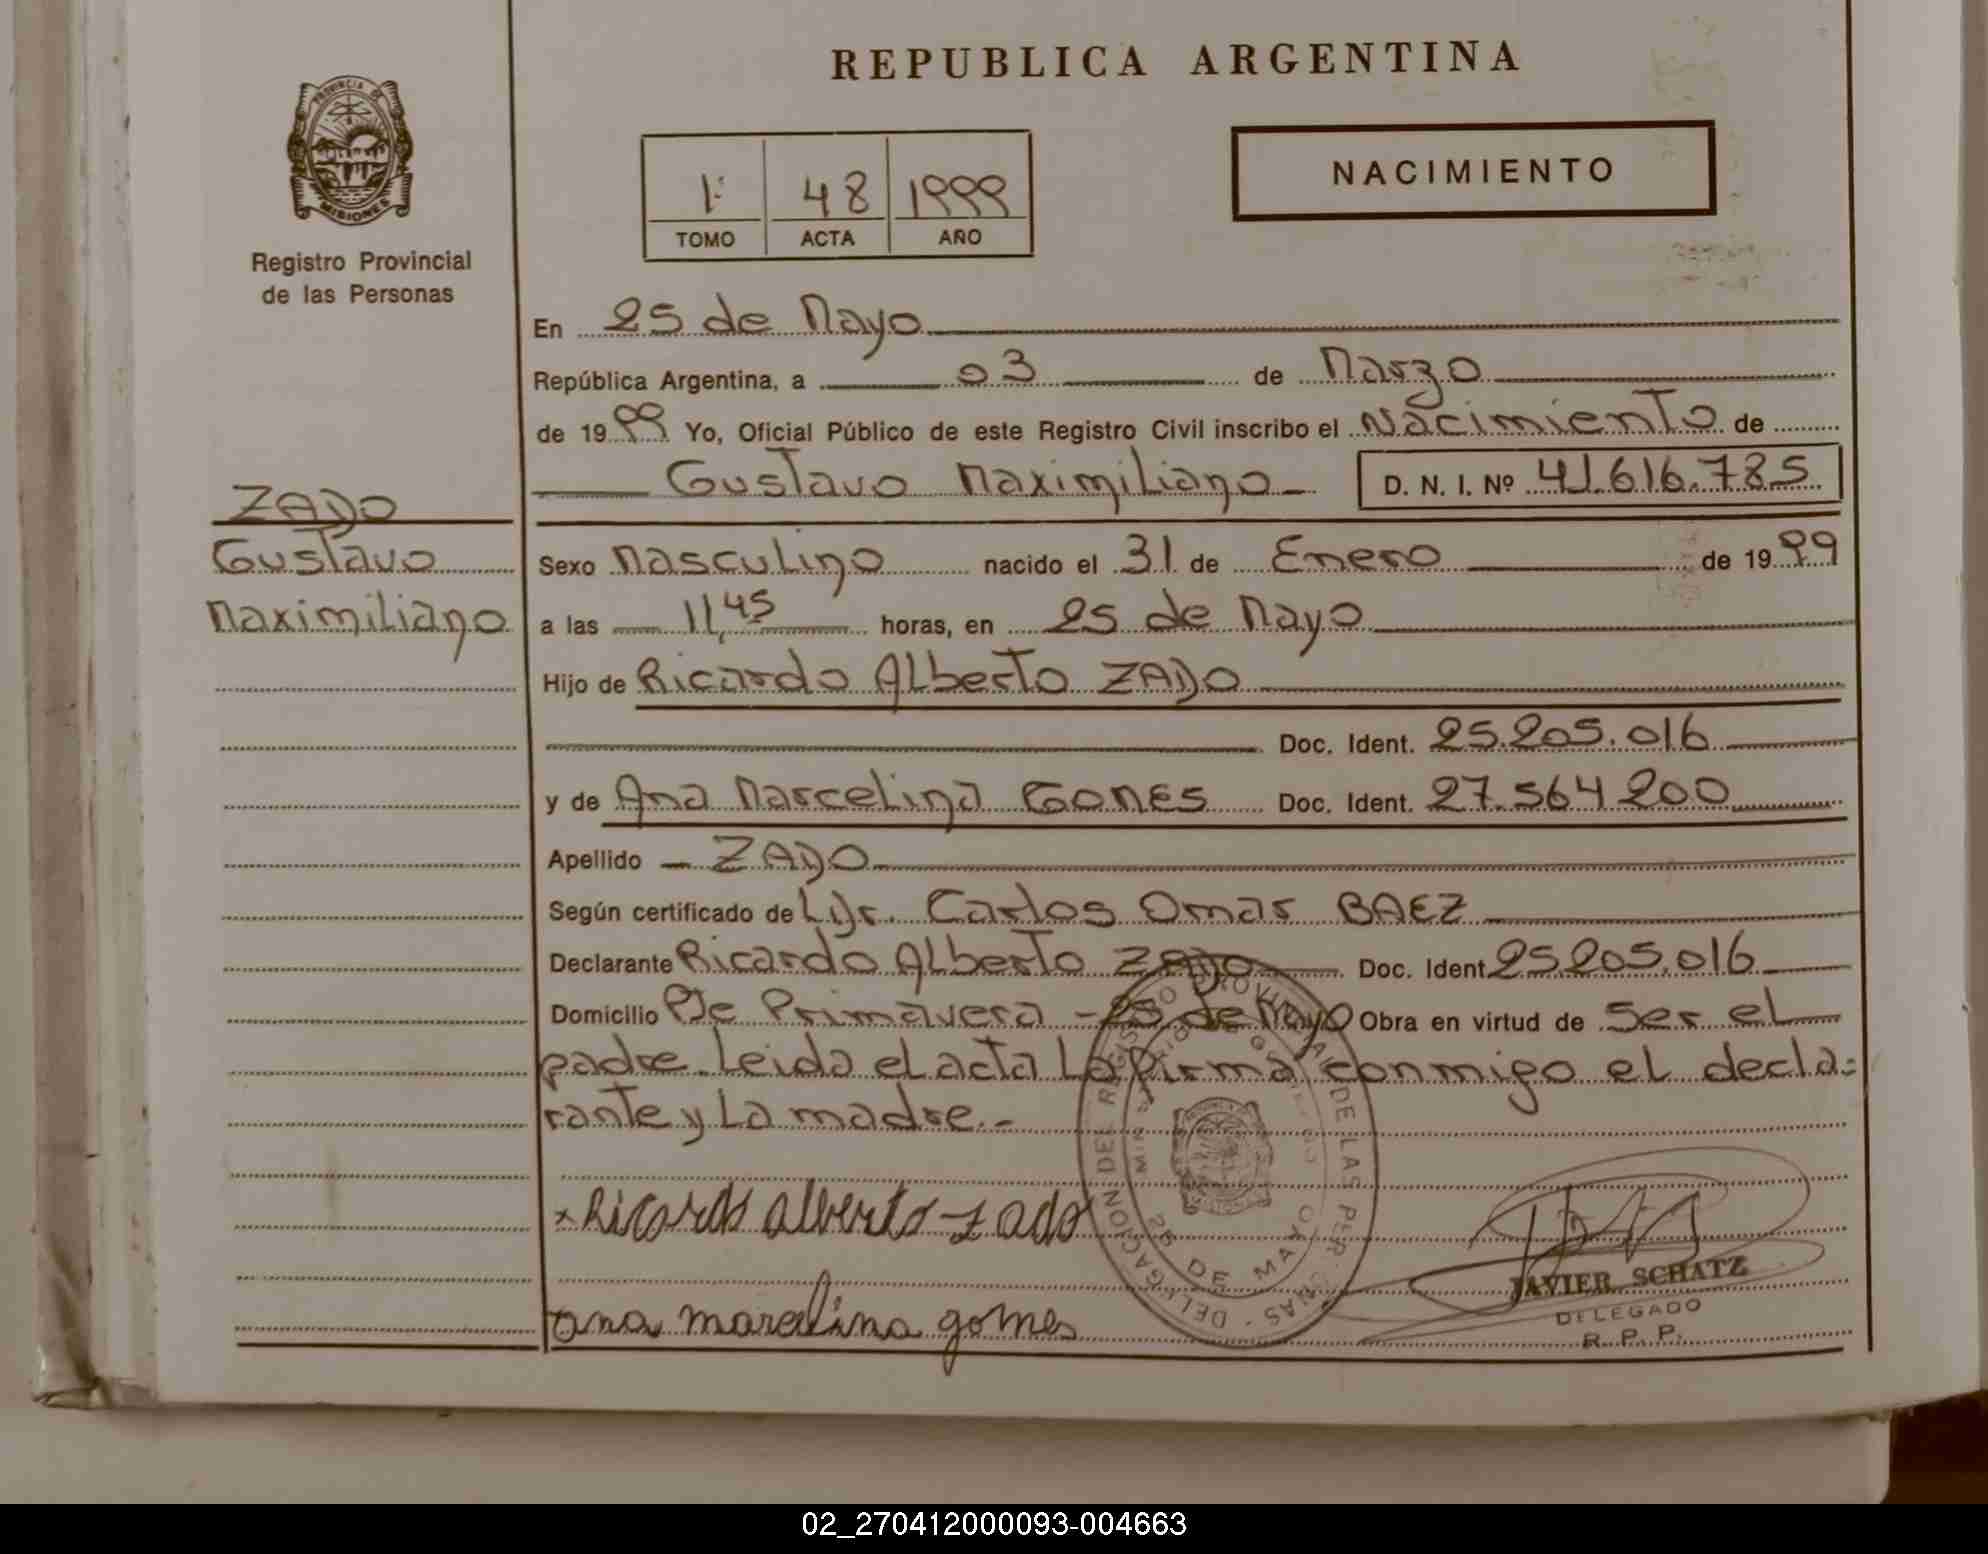 REPUBLICA ARGENTINA
PROVINCIA DE
MISIONES
Registro Provincial
de las Personas
1º 48 1999
TOMO ACTA AÑO
NACIMIENTO
En 25 de Mayo
República Argentina, a 03 de Marzo
de 1999 Yo, Oficial Público de este Registro Civil inscribo el Nacimiento de
Gustavo Maximiliano D. N. I. Nº 41.616.785
ZADO
Gustavo
Maximiliano
Sexo Masculino nacido el 31 de Enero de 1999
a las 11,45 horas, en 25 de Mayo
Hijo de Ricardo Alberto ZADO
Doc. Ident. 25.205.016
y de Ana Marcelina GOMES Doc. Ident. 27.564200
Apellido - ZADO
Según certificado de Carlos Omar BAEZ
Declarante Ricardo Alberto ZADO Doc. Ident 25205.016
Domicilio Pje Primavera - 25 de Mayo Obra en virtud de Ser el
padre. Leida el acta La firma conmigo el decla=
rante y La madre.-
x Ricardo alberto zado
ana marcelina gomes
DELEGACION DEL REGISTRO PROVINCIAL DE LAS PERSONAS
25 DE MAYO
JAVIER SCHATZ
DELEGADO
R. P. P.
02_270412000093-004663